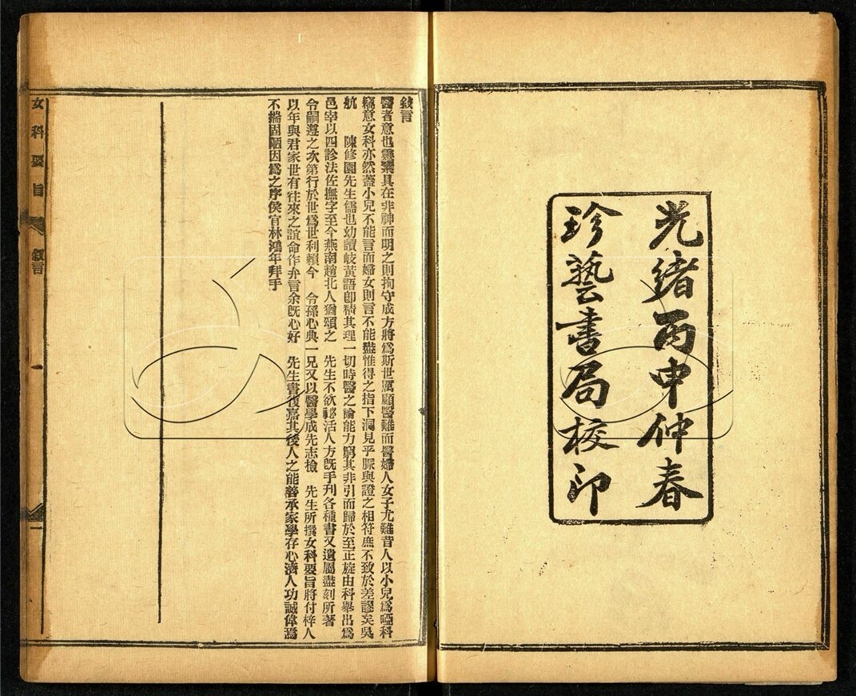 光緒丙申仲春
珍藝書局校印
敘言
醫者意也靈素具在非神而明之則拘守成方將爲斯世厲顧醫難而醫婦人女子尤難昔人以小兒爲啞科
竊意女科亦然蓋小兒不能言而婦女則言不能盡惟得之指下洞見乎脈與證之相符庶不致於差謬矣吳
航 陳修園先生儒也幼讀岐黃語卽精其理一切時醫之論能力窮其非引而歸於至正旋由科舉出爲
邑宰以四診法佐撫字至今燕南趙北人猶頌之 先生不欲祕活人方旣手刋各種書又遺屬盡刻所著
令嗣遵之次第行於世爲世利賴今 令孫心典一兄又以醫學成先志檢 先生所撰女科要旨將付梓人
以年與君家世有往來之誼命作弁言余旣心好 先生書復嘉其後人之能善承家學存心濟人功誠偉焉
不揣固陋因爲之序侯官林鴻年拜手
女科要旨 敘言 一